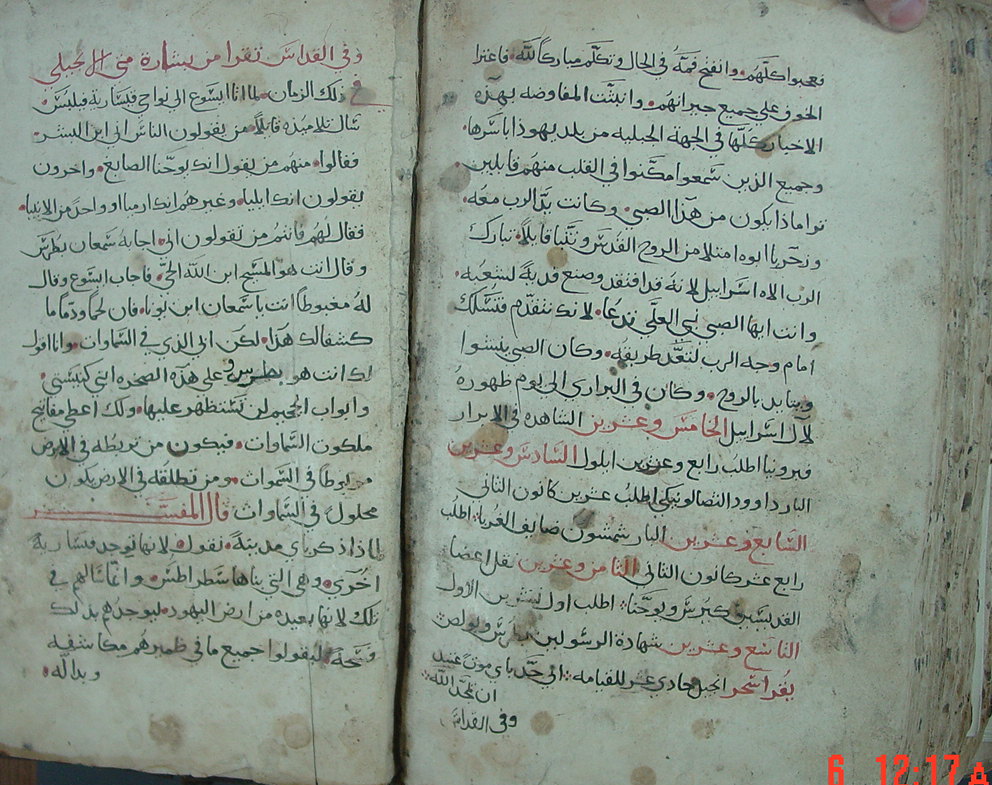 فعجبوا كلهم. وانفتح فمه في الحال وتكلم مباركًا لله. فاعترا
الخوف على جميع جيرانهم. وانبثت المفاوضه بهذه
الاخبار كلها في الجهة الجبليه من بلد يهوذا باسرها.
وجميع الذين سمعوا مكنوا في القلب منهم قايلين.
توا ماذا يكون من هذا الصبي. وكانت يد الرب معه.
وزخريا ابوه امتلا من الروح القدس وتنبا قايلاً. تبارك
الرب الاه اسراييل لانه قد افتقد وصنع فدية لشعبه.
وانت ايها الصبي نبي العلي تدعا. لانك تتقدم فتسلك
امام وجه الرب لتعد طريقه. وكان الصبي ينشوا
ويتايد بالروح. وكان في البراري الى يوم ظهوره
لآل اسراييل الخامس وعشرين الشاهده في الابرار
فبرونيا اطلب رابع وعشرين ايلول السادس وعشرين
البار داوود التسالونيكي اطلب عشرين كانون الثاني
السابع وعشرين البار شمشون ضايف الغربا اطلب
رابع عشر كانون الثاني الثامن وعشرين نقل اعضا
القديسين كيرس ويوحنا اطلب اول تشرين الاول
التاسع وعشرين شهادة الرسولين بطرس وبولص
يقرا سحر انجيل حادي عشر للقيامه الى حد باي موت عتيد
ان تمجد الله
وفي القداس
وفي القداس تقرا من بشارة متى الانجيلي
في ذلك الزمان. لما اتا ايسوع الى نواحي قيسارية فيلبس
سال تلاميذه قايلاً. من يقولون الناس اني ابن البشر.
فقالوا. منهم من يقول انك يوحنا الصابغ. واخرون
يقولون انك ايليا. وغيرهم انك ارميا او واحد من الانبيا.
فقال لهم فانتم من تقولون اني. اجابه سمعان بطرس
وقال انت هو المسيح ابن الله الحي. فاجاب ايسوع وقال
له مغبوطًا انت يا سمعان ابن يونا. فان لحمًا ودمًا ما
كشفا لك هذا. لكن ابي الذي في السماوات. وانا اقول
لك انت هو بطرس وعلى هذه الصخره ابني كنيستي.
وابواب الجحيم لن تستظهر عليها. ولك اعطي مفاتيح
ملكوت السماوات. فيكون من تربطه في الارض
مربوطًا في السموات. ومن تطلقه في الارض يكون
محلول في السماوات قال المفسر
لماذا ذكر باي مدينة. نقول. لانها توجد قيسارية
اخرى. وهي التي بناها سطراطس. وانما سالهم في
تلك لانها بعيده من ارض اليهود. ليوجدهم بذلك
فسحة. ليقولوا جميع ما في ظميرهم مكاشفه
وبداله.
6 12:17